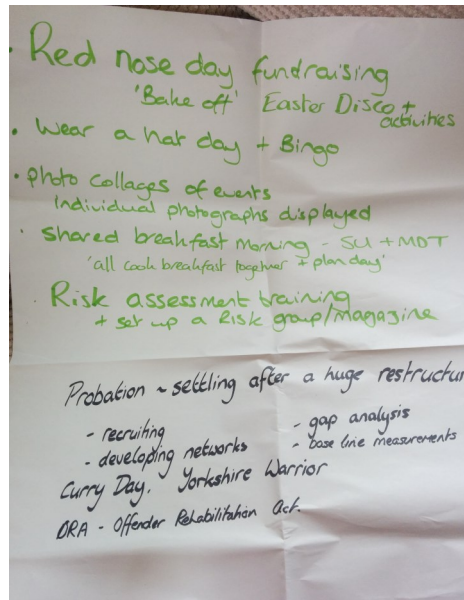 • Red nose day fundraising
'Bake off' Easter Disco +
activities
• Wear a hat day + Bingo
• photo collages of events
Individual photographs displayed
• Shared breakfast morning - SU + MDT
'all cook breakfast together + plan day'
• Risk assessment training
+ set up a Risk group/magazine
Probation ~ settling after a huge restructur
- recruiting
- developing networks
- gap analysis
- base line measurements
Curry Day. Yorkshire Warrior
ORA - Offender Rehabilitation Act.